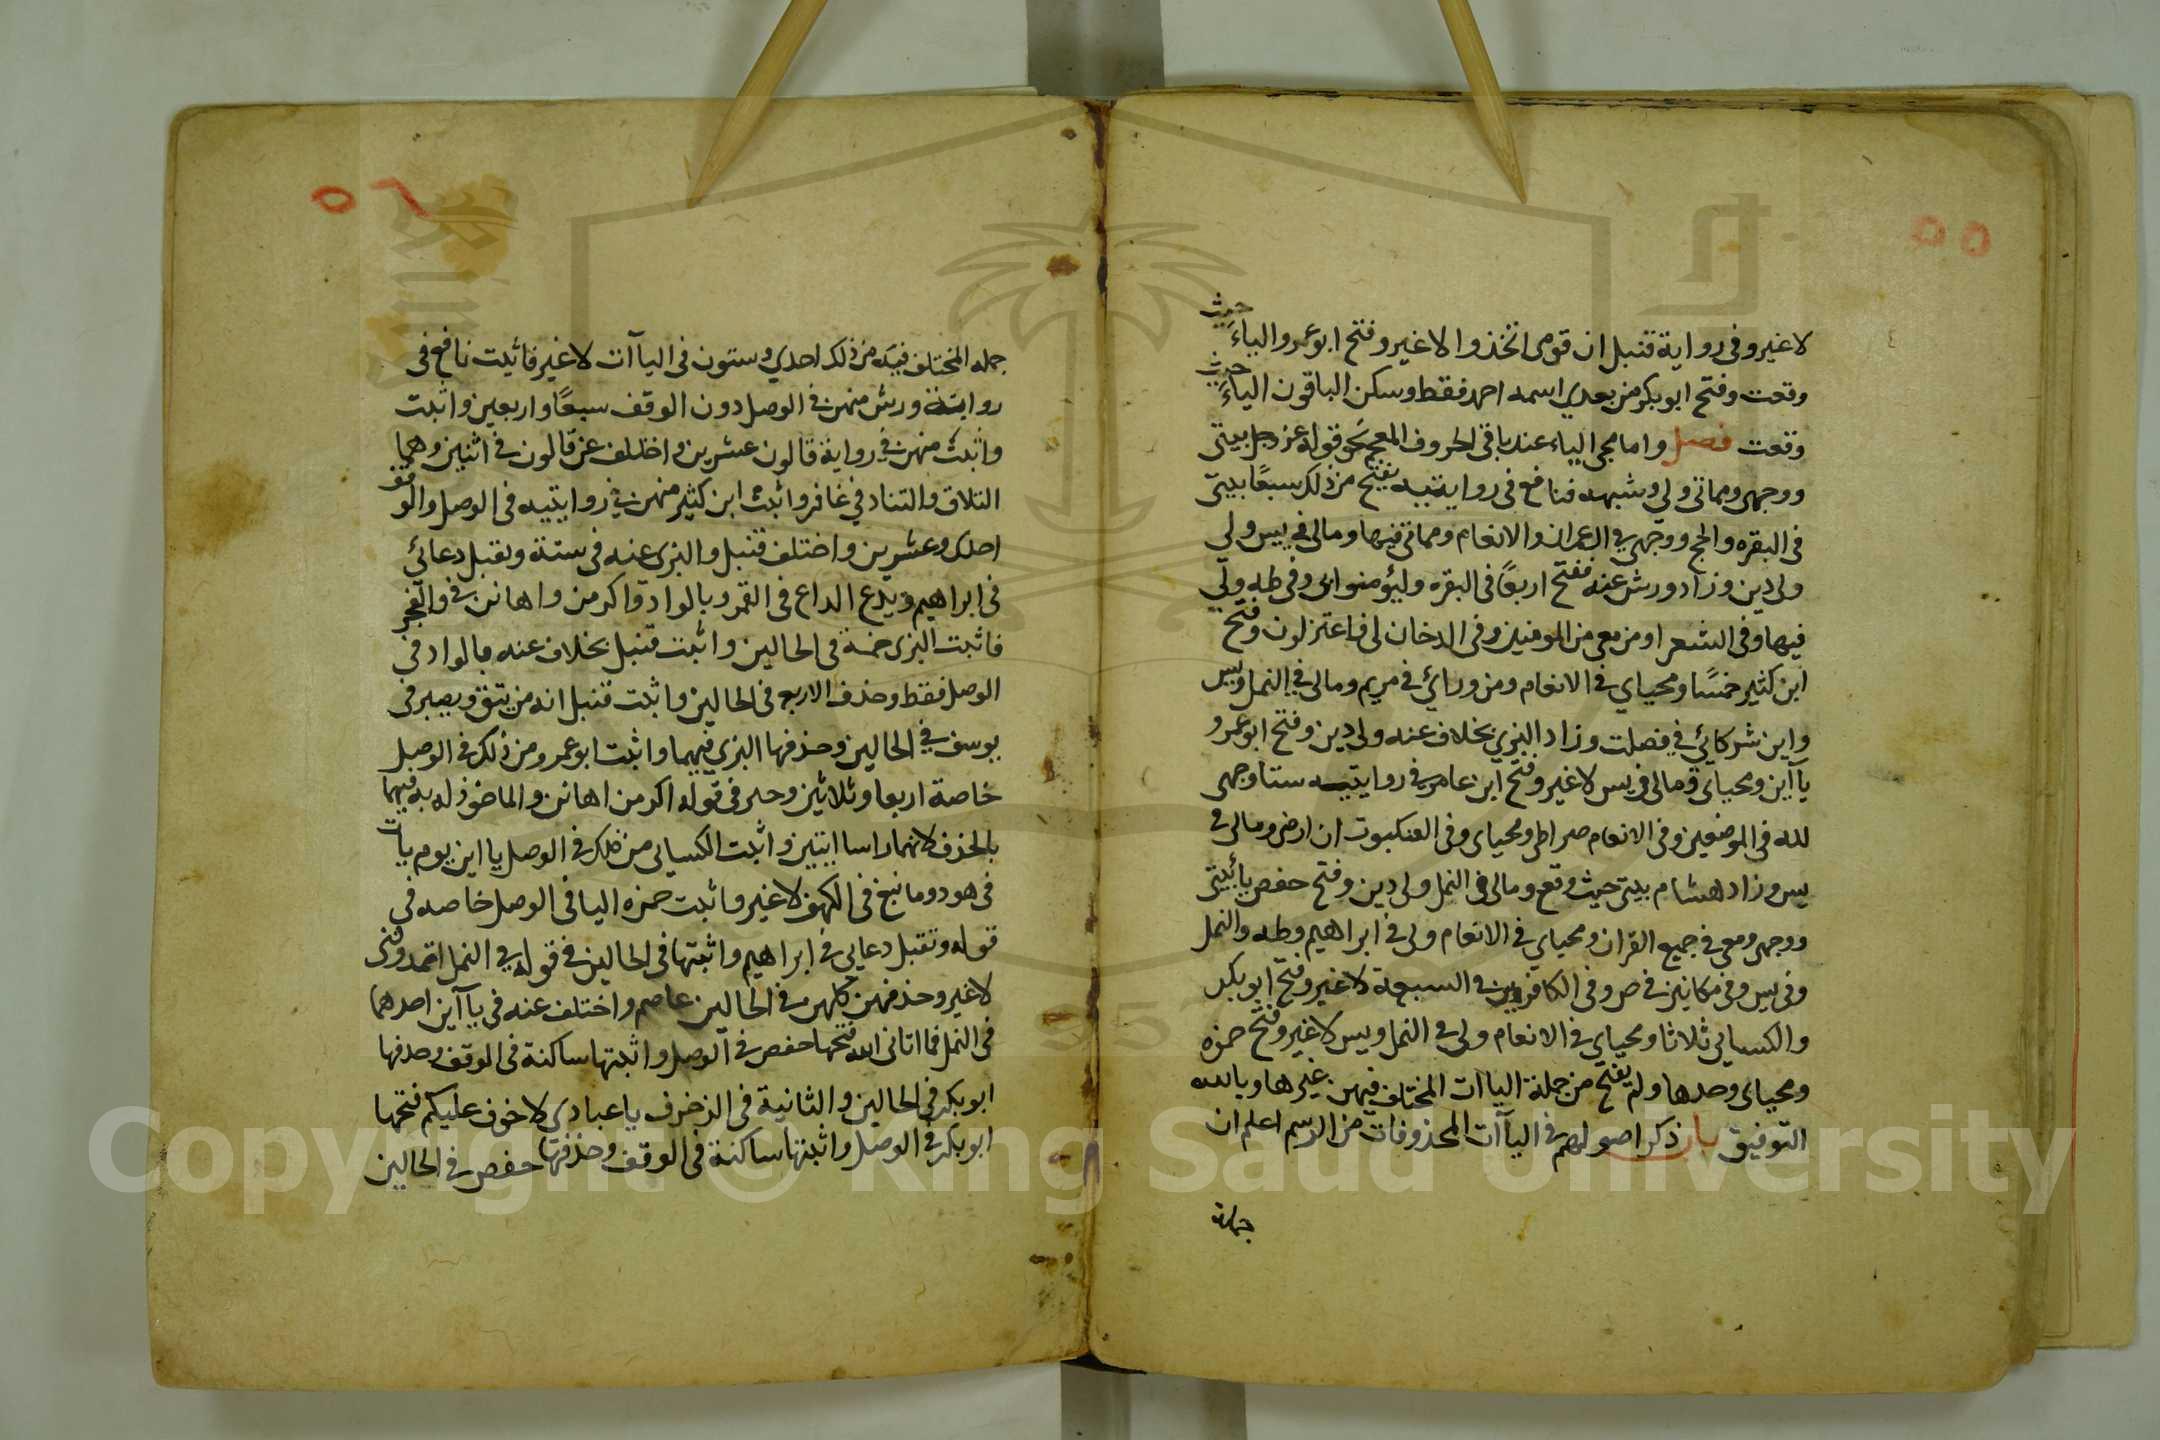 ٥٥
لا غير وفي رواية قنبل ان قومى اتخذوا لا غير وفتح ابو عمرو الياء حيث
وقعت وفتح ابو بكر من بعدي اسمه احمد فقط وسكن الباقون الياء حيث
وقعت فصل واما مجى الياء عند باقي الحروف المعجم نحو قوله عز وجل بيتى
ووجهى ومماتى ولي وشبهه فنافع فى روايتيه يفتح من ذلك سبعًا بيتى
فى البقره والحج ووجهى فى ال عمران والانعام ومماتى فيها ومالى في يس ولي
ولى دين وزاد ورش عنه ففتح اربعًا فى البقره وليؤمنوا بى وفى طه ولي
فيها وفى الشعرا ومن معى من المومنين وفى الدخان لى فاعتزلون وفتح
ابن كثير خمسًا ومحياي فى الانعام ومن ورائي فى مريم ومالى في النمل ويس
واين شركائي في فصلت وزاد البزي بخلاف عنه ولى دين وفتح ابو عمرو
يآاين ومحياى ومالى فى يس لا غير وفتح ابن عامر فى روايتيه ستا وجهى
لله فى الموضعين وفى الانعام صراطى ومحياى وفى العنكبوت ان ارضى ومالى فى
يس وزاد هشام بيتى حيث وقع ومالى فى النمل ولى دين وفتح حفص يا بيتى
ووجهى ومعى فى جميع القران ومحياي فى الانعام ولى فى ابراهيم وطه والنمل
وفى يس وفى مكانين فى ص وفى الكافرين فى السبعة لا غير وفتح ابو بكر
والكسايى ثلاثا ومحياي فى الانعام ولى فى النمل ويس لا غير وفتح حمزه
ومحياى وحدها ولم يفتح من جملة الياات المختلف فيهن غيرها وبالله
التوفيق باب ذكر اصولهم فى الياآت المحذوفات من الرسم اعلم ان
جملة
جمله المختلف فيه من ذلك احدي وستون فى الياآت لا غير فاثبت نافع فى
رواية ورش منهن فى الوصل دون الوقف سبعًا واربعين واثبت
واثبت منهن فى رواية قالون عشرين واختلف عن قالون فى اثنين وهما
التلاق والتناد في غافر واثبت ابن كثير منهن فى روايتيه فى الوصل والوقف
احدى وعشرين واختلف قنبل والبزى عنه فى ستة وتقبل دعائي
فى ابراهيم ويدع الداع فى القمر وبالواد واكرمن واهانن فى والفجر
فاثبت البزى خمسة فى الحالين واثبت قنبل بخلاف عنه بالواد فى
الوصل فقط وحذف الاربع فى الحالين واثبت قنبل انه من يتق ويصبر فى
يوسف في الحالين وحذفها البزي فيهما واثبت ابو عمرو من ذلك فى الوصل
خاصة اربعا وثلاثين وخير فى قوله اكرمن اهانن والماخوذ له به فيهما
بالحذف لانهما راسا ايتين واثبت الكسايى من ذلك فى الوصل ياين يوم يات
فى هود وما نبغ فى الكهف لا غير واثبت حمزه اليا فى الوصل خاصه فى
قوله وتقبل دعايى فى ابراهيم واثبتها فى الحالين فى قوله فى النمل اتمدونى
لا غير وحذفهن كلهن فى الحالين عاصم واختلف عنه فى يآاين احدهما
فى النمل فما اتانى الله فتحها حفص فى الوصل واثبتها ساكنة فى الوقف وحذفها
ابو بكر فى الحالين والثانية فى الزخرف يا عبادى لا خوف عليكم فتحها
ابو بكر فى الوصل واثبتها ساكنة فى الوقف وحذفها حفص فى الحالين
Copyright © King Saud University